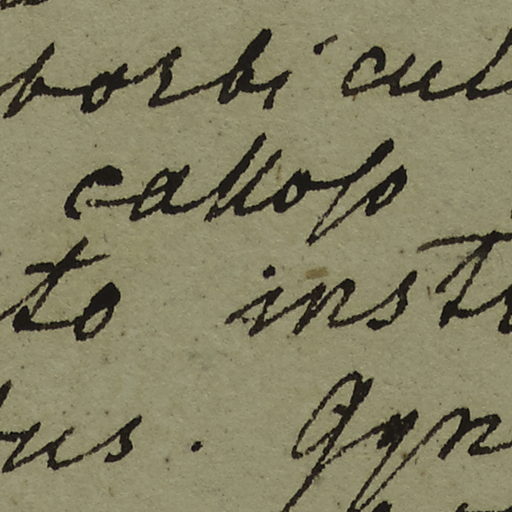 borbicul
calloso
to inst
us. Gyn